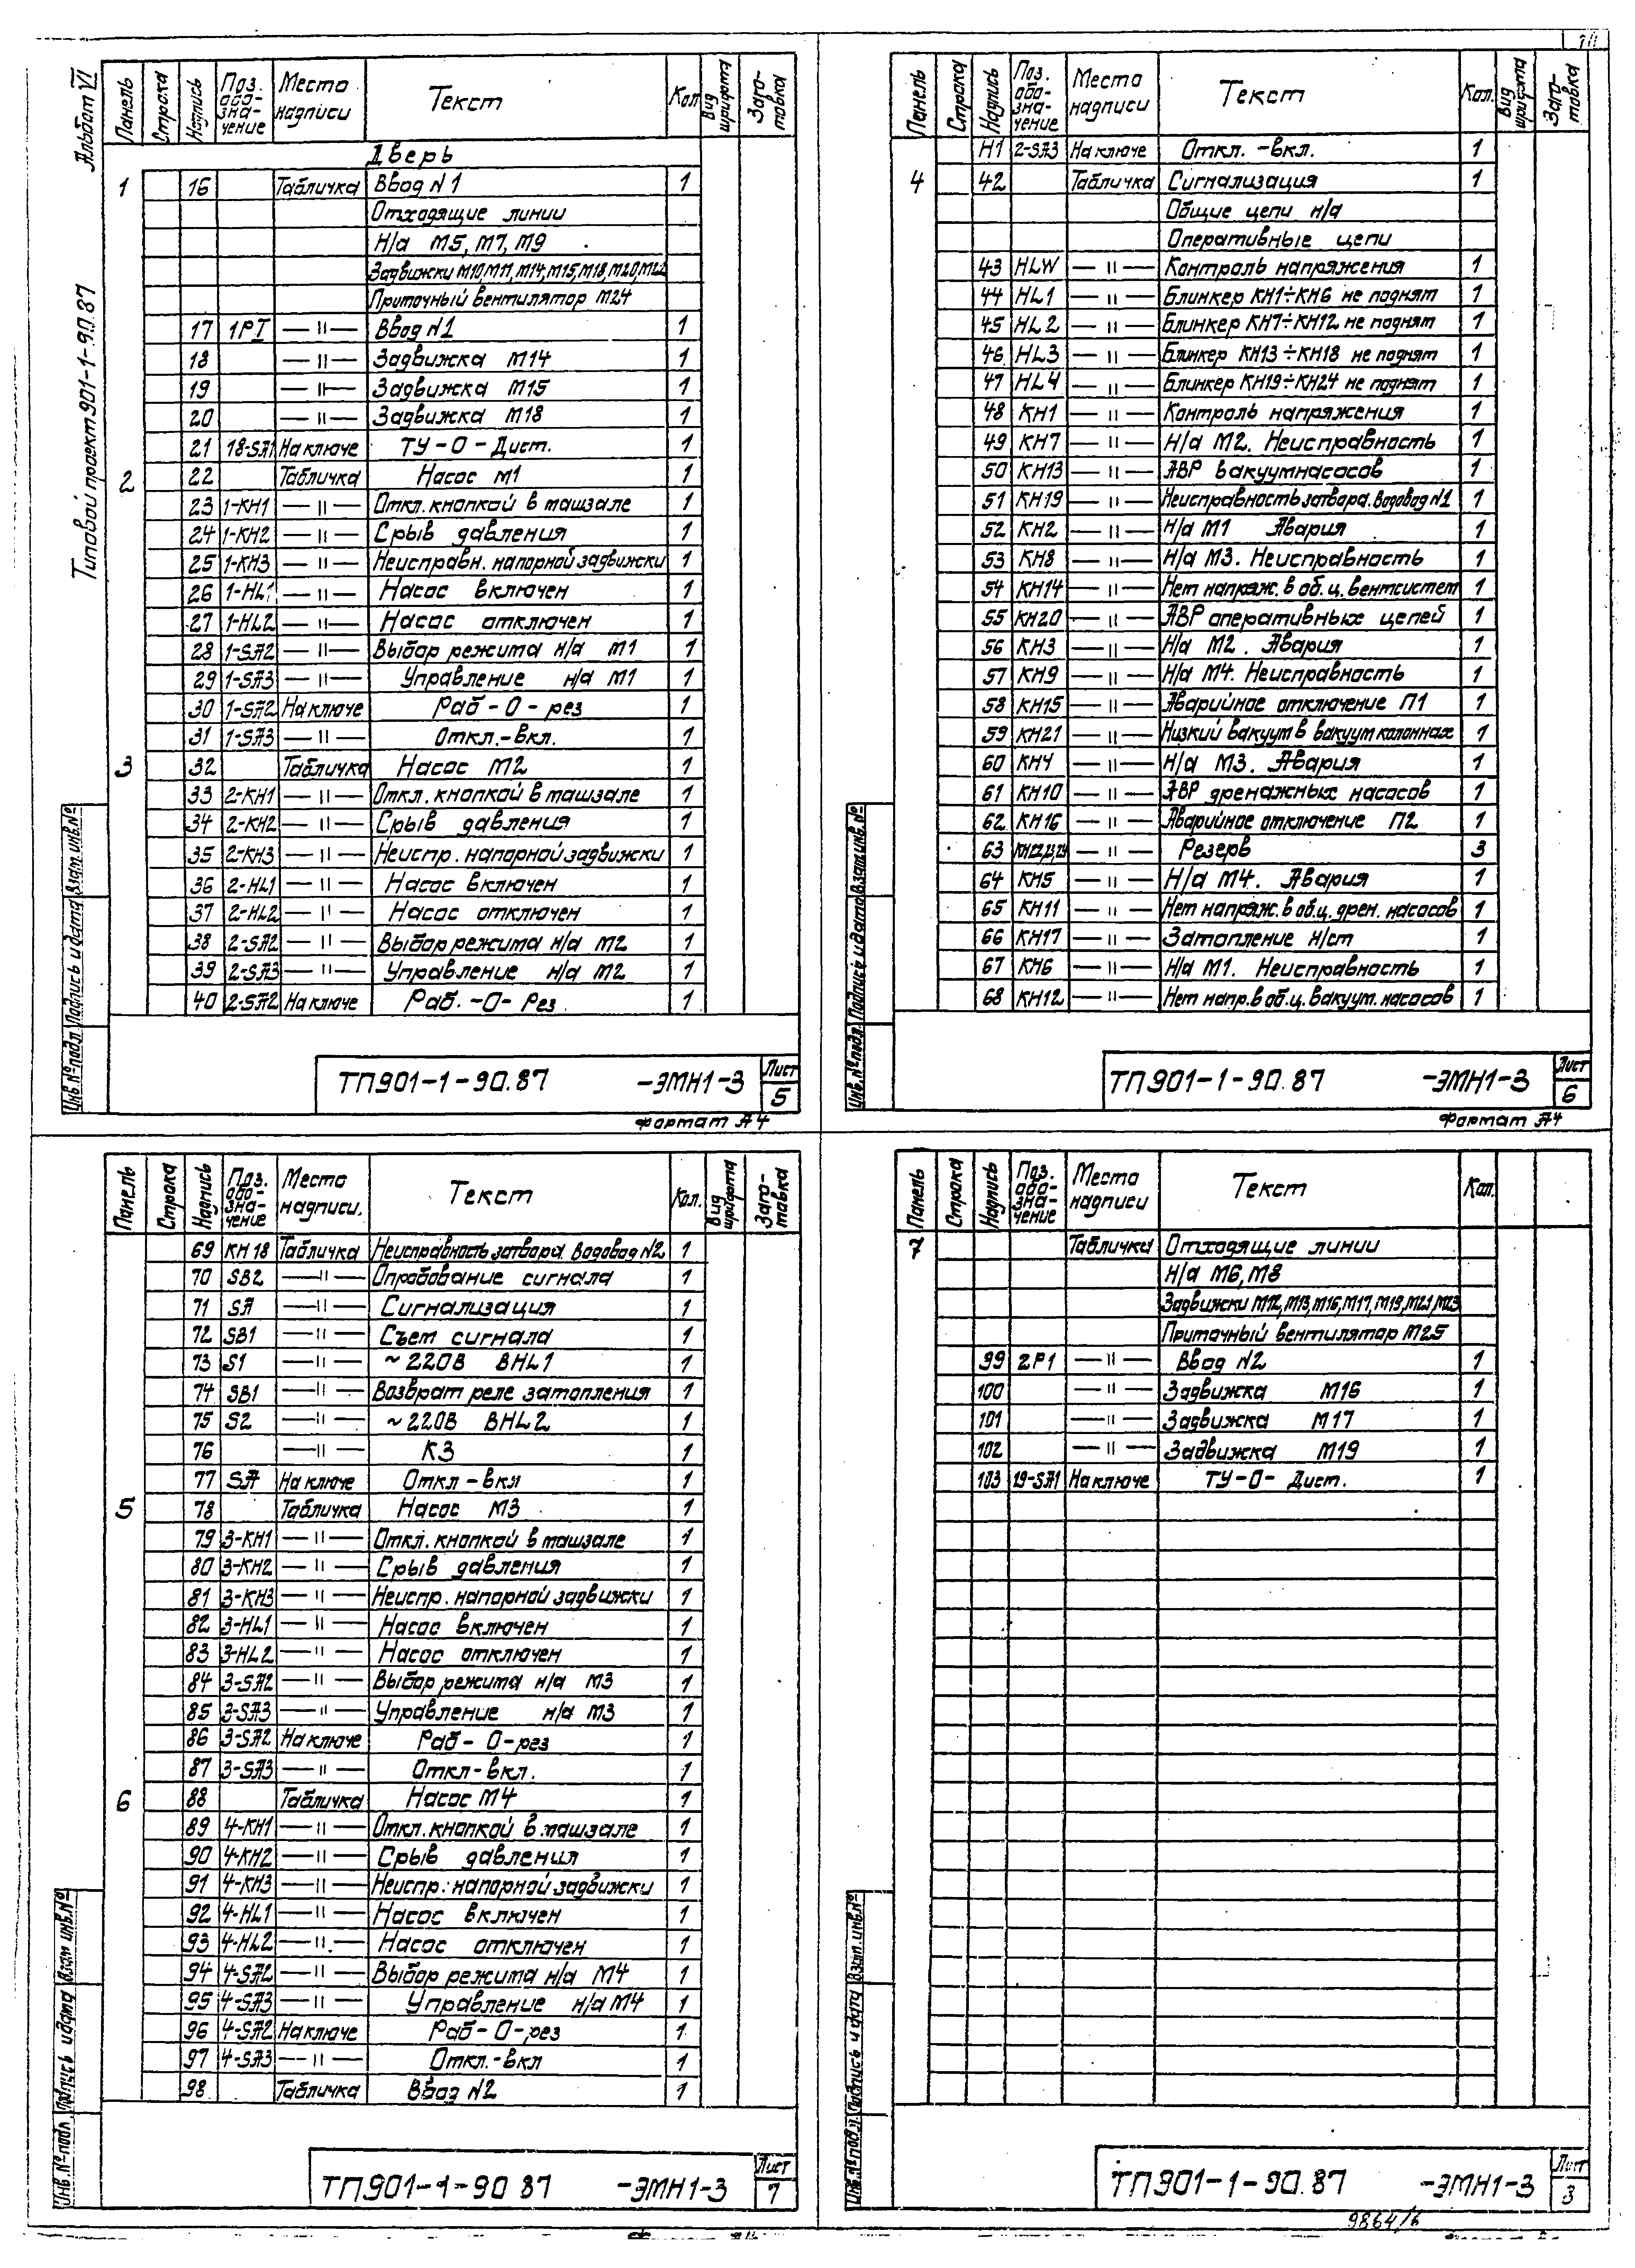 Альбом VI
Типовой проект 901-1-90.87
Панель Строка Надпись Поз. обозначение Место надписи Текст Кол. Вид шрифта Заготовка
Дверь
1 16 Табличка Ввод N1 1
Отходящие линии
Н/а М5, М7, М9
Задвижки М10, М11, М14, М15, М18, М20, М22
Приточный вентилятор М24
17 1PI — 〃 — Ввод N1 1
18 — 〃 — Задвижка М14 1
19 — 〃 — Задвижка М15 1
20 — 〃 — Задвижка М18 1
21 18-SA1 На ключе ТУ-О-Дист. 1
2 22 Табличка Насос М1 1
23 1-КН1 — 〃 — Откл. кнопкой в машзале 1
24 1-КН2 — 〃 — Срыв давления 1
25 1-КН3 — 〃 — Неисправн. напорной задвижки 1
26 1-HL1 — 〃 — Насос включен 1
27 1-HL2 — 〃 — Насос отключен 1
28 1-SA2 — 〃 — Выбор режима н/а М1 1
29 1-SA3 — 〃 — Управление н/а М1 1
30 1-SA2 На ключе Раб-О-рез 1
31 1-SA3 — 〃 — Откл.-вкл. 1
3 32 Табличка Насос М2 1
33 2-КН1 — 〃 — Откл. кнопкой в машзале 1
34 2-КН2 — 〃 — Срыв давления 1
35 2-КН3 — 〃 — Неиспр. напорной задвижки 1
36 2-HL1 — 〃 — Насос включен 1
37 2-HL2 — 〃 — Насос отключен 1
38 2-SA2 — 〃 — Выбор режима н/а М2 1
39 2-SA3 — 〃 — Управление н/а М2 1
40 2-SA2 На ключе Раб.-О-Рез 1
Инв.№ подл. Подпись и дата Взам. инв.№
ТП901-1-90.87 -ЭМН1-3 Лист 5
Формат А4
Панель Строка Надпись Поз. обозначение Место надписи Текст Кол. Вид шрифта Заготовка
Н1 2-SA3 На ключе Откл.-вкл. 1
4 42 Табличка Сигнализация 1
Общие цепи н/а
Оперативные цепи
43 HLW — 〃 — Контроль напряжения 1
44 HL1 — 〃 — Блинкер КН1÷КН6 не поднят 1
45 HL2 — 〃 — Блинкер КН7÷КН12 не поднят 1
46 HL3 — 〃 — Блинкер КН13÷КН18 не поднят 1
47 HL4 — 〃 — Блинкер КН19÷КН24 не поднят 1
48 КН1 — 〃 — Контроль напряжения 1
49 КН7 — 〃 — Н/а М2. Неисправность 1
50 КН13 — 〃 — АВР вакуумнасосов 1
51 КН19 — 〃 — Неисправность затвора. Водовод N1 1
52 КН2 — 〃 — Н/а М1 Авария 1
53 КН8 — 〃 — Н/а М3. Неисправность 1
54 КН14 — 〃 — Нет напряж. в об. ц. вентсистем 1
55 КН20 — 〃 — АВР оперативных цепей 1
56 КН3 — 〃 — Н/а М2. Авария 1
57 КН9 — 〃 — Н/а М4. Неисправность 1
58 КН15 — 〃 — Аварийное отключение П1 1
59 КН21 — 〃 — Низкий вакуум в вакуум колоннах 1
60 КН4 — 〃 — Н/а М3. Авария 1
61 КН10 — 〃 — АВР дренажных насосов 1
62 КН16 — 〃 — Аварийное отключение П2 1
63 КН22,23,24 — 〃 — Резерв 3
64 КН5 — 〃 — Н/а М4. Авария 1
65 КН11 — 〃 — Нет напряж. в об. ц. дрен. насосов 1
66 КН17 — 〃 — Затопление н/ст 1
67 КН6 — 〃 — Н/а М1. Неисправность 1
68 КН12 — 〃 — Нет напр. в об. ц. вакуум. насосов 1
Инв.№ подл. Подпись и дата Взам. инв.№
ТП901-1-90.87 -ЭМН1-3 Лист 6
Формат А4
Панель Строка Надпись Поз. обозначение Место надписи. Текст Кол. Вид шрифта Заготовка
69 КН18 Табличка Неисправность затвора. Водовод N2 1
70 SB2 — 〃 — Опробование сигнала 1
71 SA — 〃 — Сигнализация 1
72 SB1 — 〃 — Съем сигнала 1
73 S1 — 〃 — ~220В ВHL1 1
74 SB1 — 〃 — Возврат реле затопления 1
75 S2 — 〃 — ~220В ВHL2 1
76 — 〃 — КЗ 1
77 SA На ключе Откл-вкл 1
5 78 Табличка Насос М3 1
79 3-КН1 — 〃 — Откл. кнопкой в машзале 1
80 3-КН2 — 〃 — Срыв давления 1
81 3-КН3 — 〃 — Неиспр. напорной задвижки 1
82 3-HL1 — 〃 — Насос включен 1
83 3-HL2 — 〃 — Насос отключен 1
84 3-SA2 — 〃 — Выбор режима н/а М3 1
85 3-SA3 — 〃 — Управление н/а М3 1
86 3-SA2 На ключе Раб-О-рез 1
87 3-SA3 — 〃 — Откл-вкл. 1
6 88 Табличка Насос М4 1
89 4-КН1 — 〃 — Откл. кнопкой в машзале 1
90 4-КН2 — 〃 — Срыв давления 1
91 4-КН3 — 〃 — Неиспр. напорной задвижки 1
92 4-HL1 — 〃 — Насос включен 1
93 4-HL2 — 〃 — Насос отключен 1
94 4-SA2 — 〃 — Выбор режима н/а М4 1
95 4-SA3 — 〃 — Управление н/а М4 1
96 4-SA2 На ключе Раб-О-рез 1
97 4-SA3 — 〃 — Откл.-вкл 1
98 Табличка Ввод N2 1
Инв.№ подл. Подпись и дата Взам. инв.№
ТП901-1-90 87 -ЭМН1-3 Лист 7
Панель Строка Надпись Поз. обозначение Место надписи Текст Кол.
7 Табличка Отходящие линии
Н/а М6, М8
Задвижки М12, М13, М16, М17, М19, М21, М23
Приточный вентилятор М25
99 2Р1 — 〃 — Ввод N2 1
100 — 〃 — Задвижка М16 1
101 — 〃 — Задвижка М17 1
102 — 〃 — Задвижка М19 1
103 19-SA1 На ключе ТУ-О-Дист. 1
Инв.№ подл. Подпись и дата Взам. инв.№
ТП901-1-90.87 -ЭМН1-3 Лист 3
9864/6